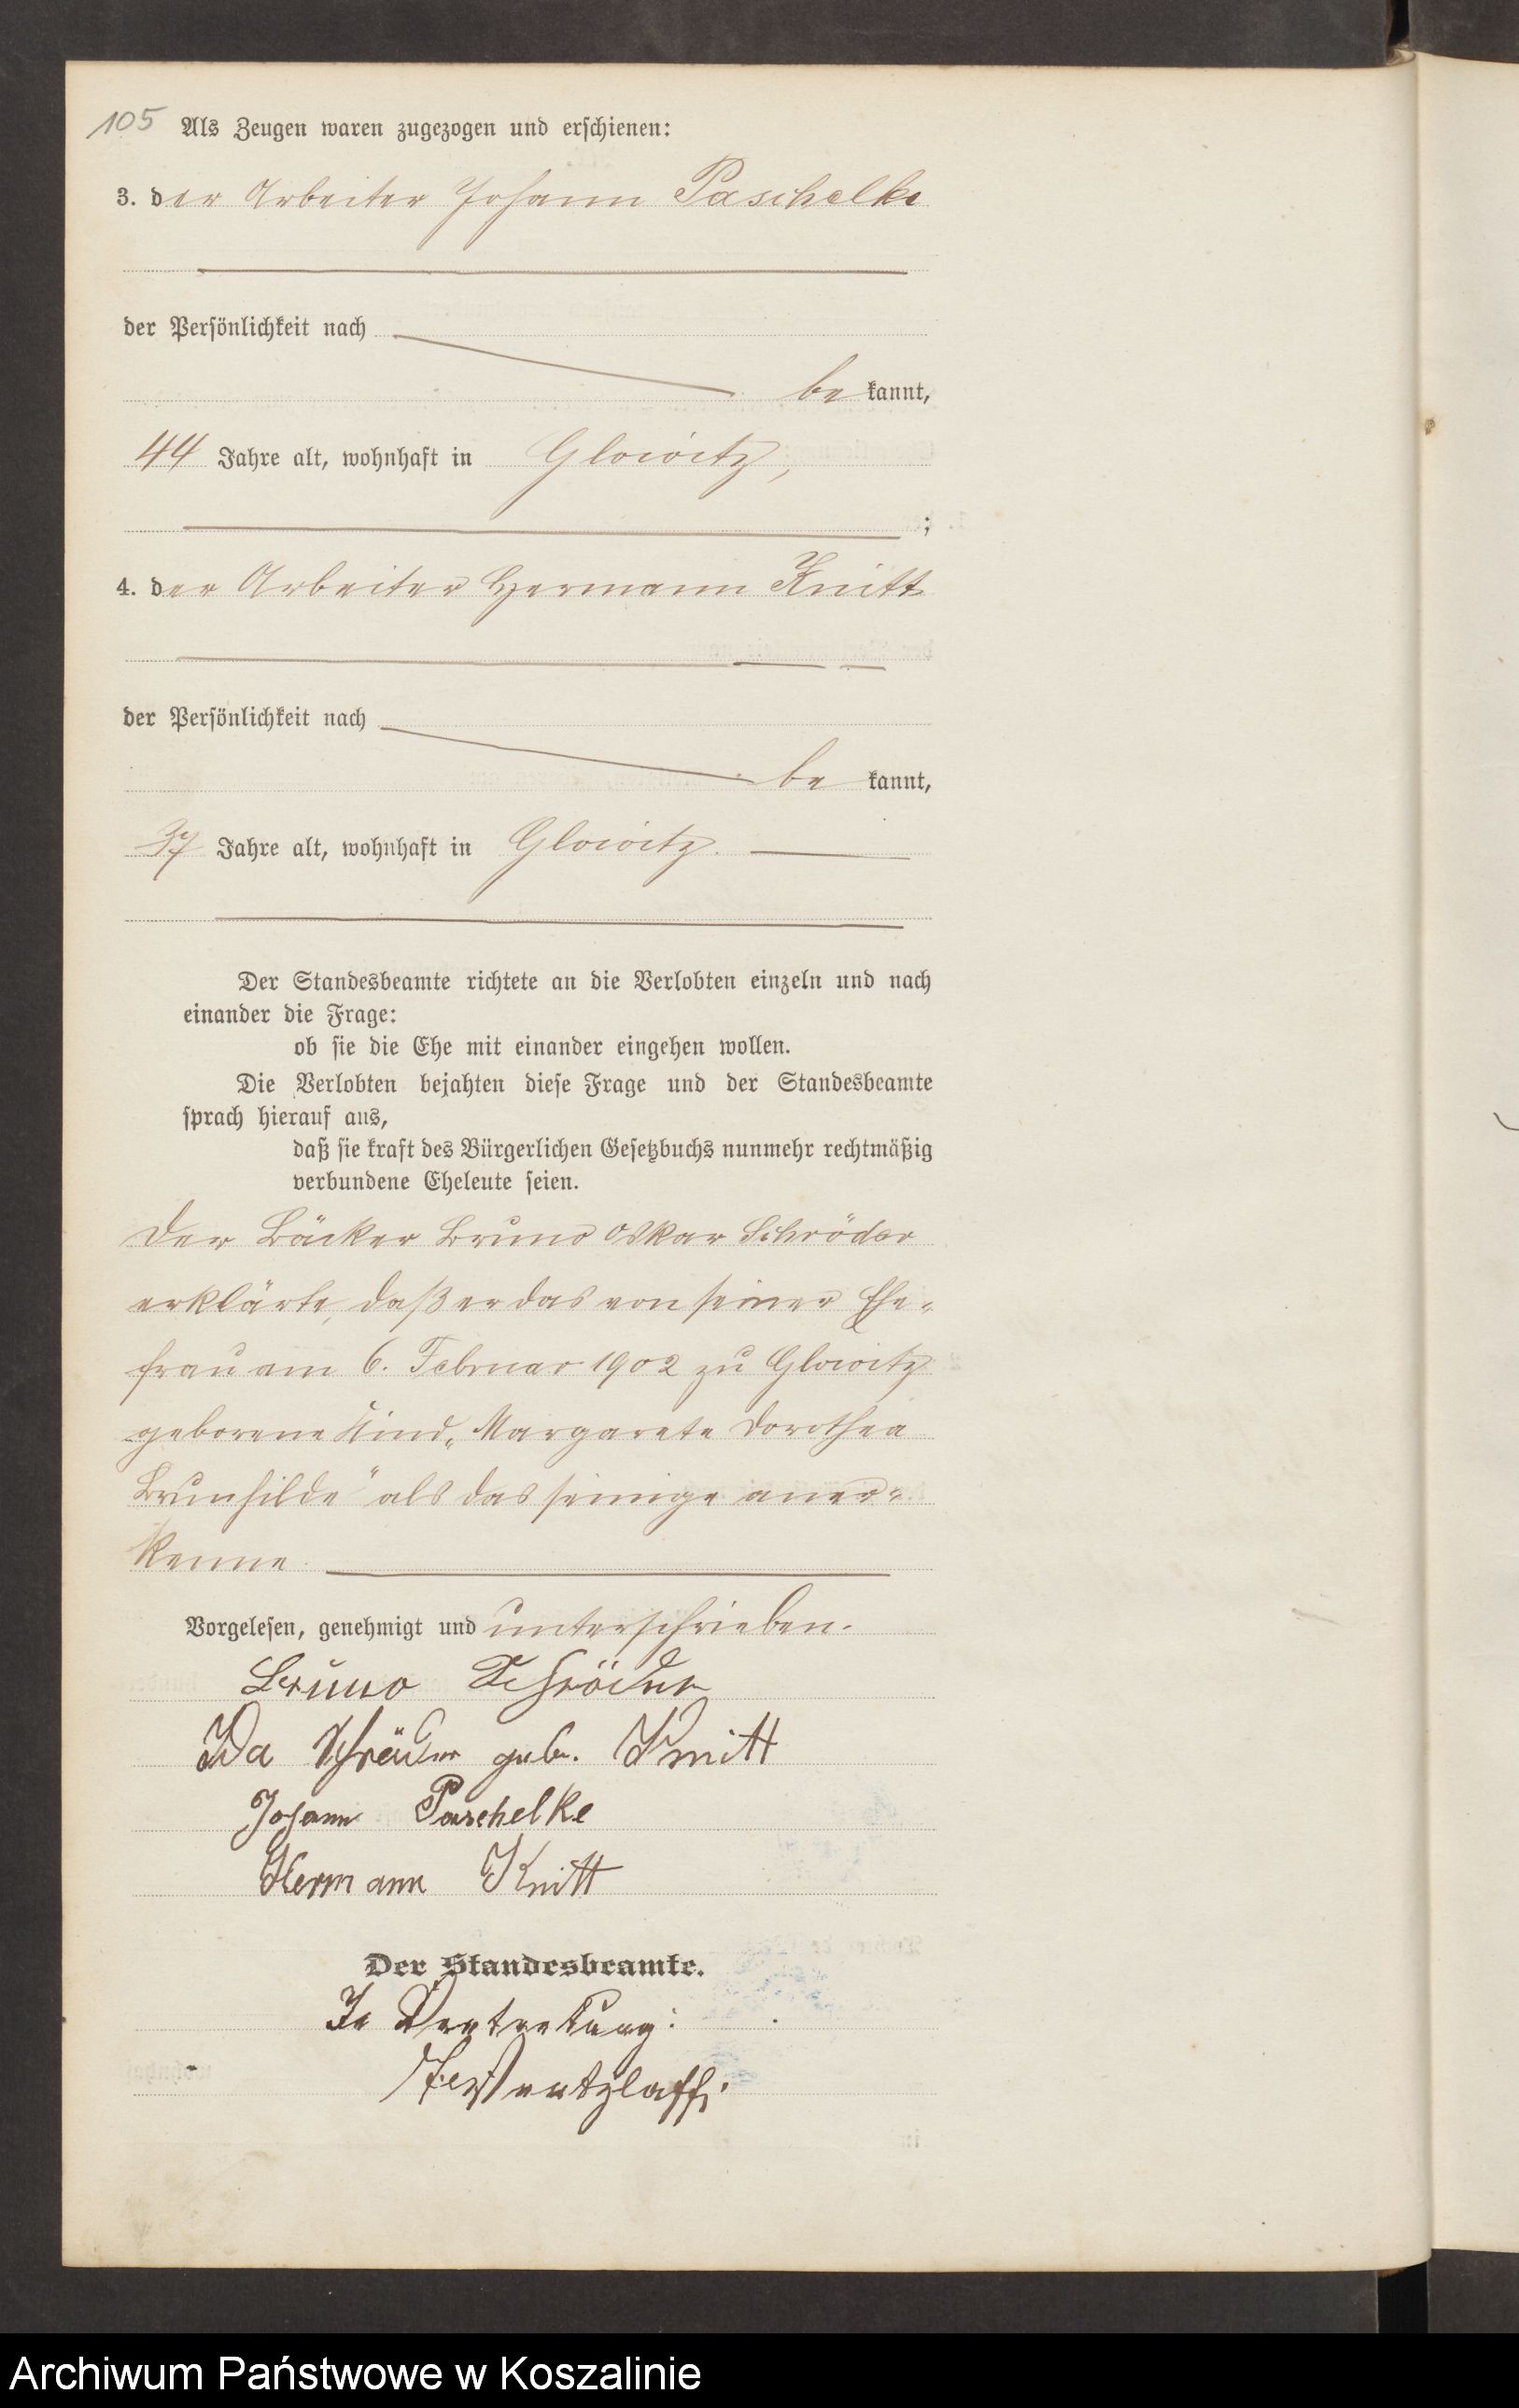 105 Als Zeugen waren zugezogen und erschienen:
3. der Arbeiter Johann Paschelke
der Persönlichkeit nach
be kannt,
44 Jahre alt, wohnhaft in Glowitz,
;
4. der Arbeiter Hermann Knitt
der Persönlichkeit nach
be kannt,
37 Jahre alt, wohnhaft in Glowitz.
Der Standesbeamte richtete an die Verlobten einzeln und nach
einander die Frage:
ob sie die Ehe mit einander eingehen wollen.
Die Verlobten bejahten diese Frage und der Standesbeamte
sprach hierauf aus,
daß sie kraft des Bürgerlichen Gesetzbuchs nunmehr rechtmäßig
verbundene Eheleute seien.
Der Bäcker Bruno Oskar Schröder
erklärte, daß er das von seiner Ehe-
frau am 6. Februar 1902 zu Glowitz
geborene Kind „Margarete Dorothea
Brunhilde" als das seinige aner-
kenne.
Vorgelesen, genehmigt und unterschrieben.
Bruno Schröder
Ida Schröder geb. Knitt
Johann Paschelke
Hermann Knitt
Der Standesbeamte.
In Vertretung:
Wentzlaff.
Archiwum Państwowe w Koszalinie